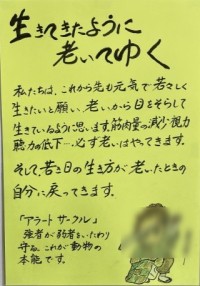 生きてきたように
老いてゆく
私たちは、これから先も元気で若々しく
生きたいと願い、老いから目をそらして
生きているように思います。筋肉量の減少、視力
聴力の低下…必ず老いはやってきます。
そして、若き日の生き方が老いたときの
自分に戻ってきます。
「アラート サークル」
強者が弱者をいたわり
守る。これが動物の
本能です。